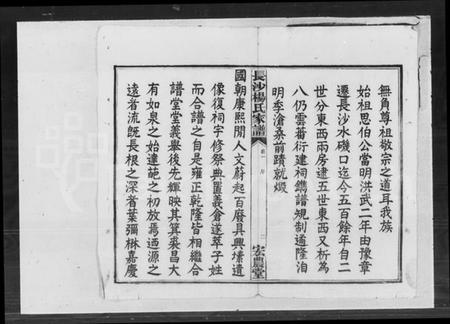 無角尊祖敬宗之道耳我族
始祖思伯公當明洪武二年由豫章
遷長沙水磯口迄今五百餘年自二
世分東西兩房逮五世東西又析為
八仍雲蕃衍建祠鐫譜規制遹隆洎
明季滄桑前蹟就燬
長沙楊氏家譜
卷一 序
二
宏農堂
國朝康熙閒人文蔚起百廢具興塐遺
像復祠宇修祭典置義倉遂萃子姓
而合譜之自是雍正乾隆皆相繼合
譜堂堂義舉後先輝映其箕裘昌大
有如泉之始達葩之初放焉迺源之
遠者流旣長根之深者葉彌楙嘉慶